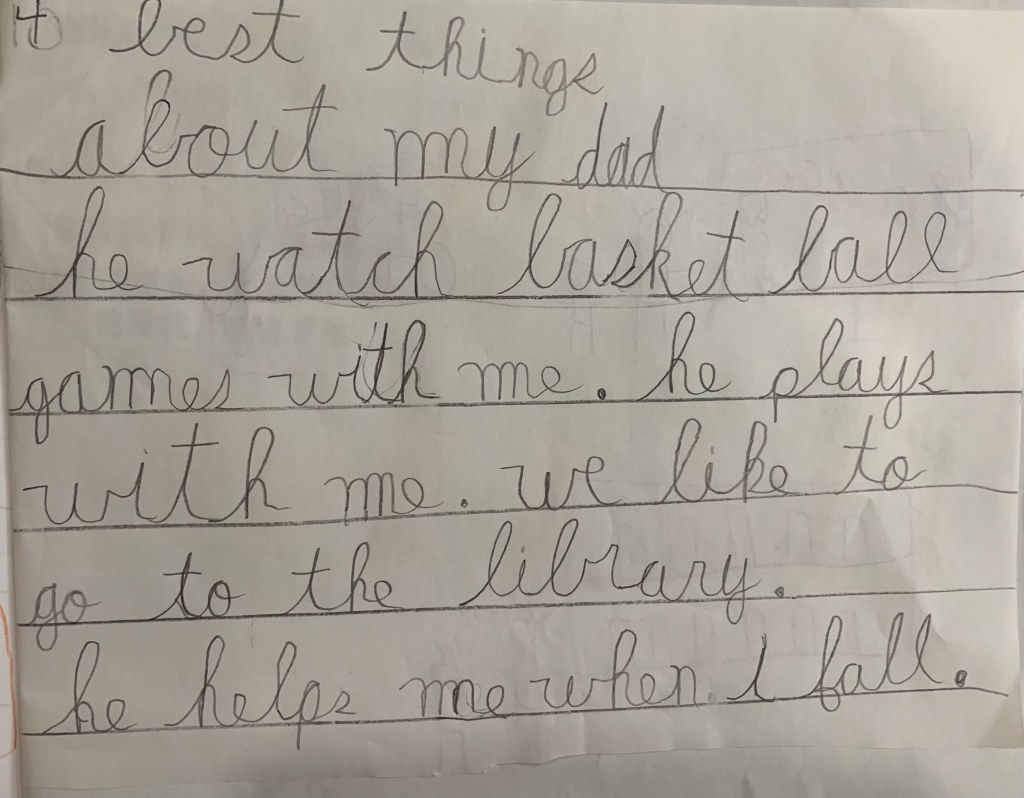 4 best things
about my dad
he watch basket ball
games with me. he plays
with me. we like to
go to the library.
he helps me when I fall.